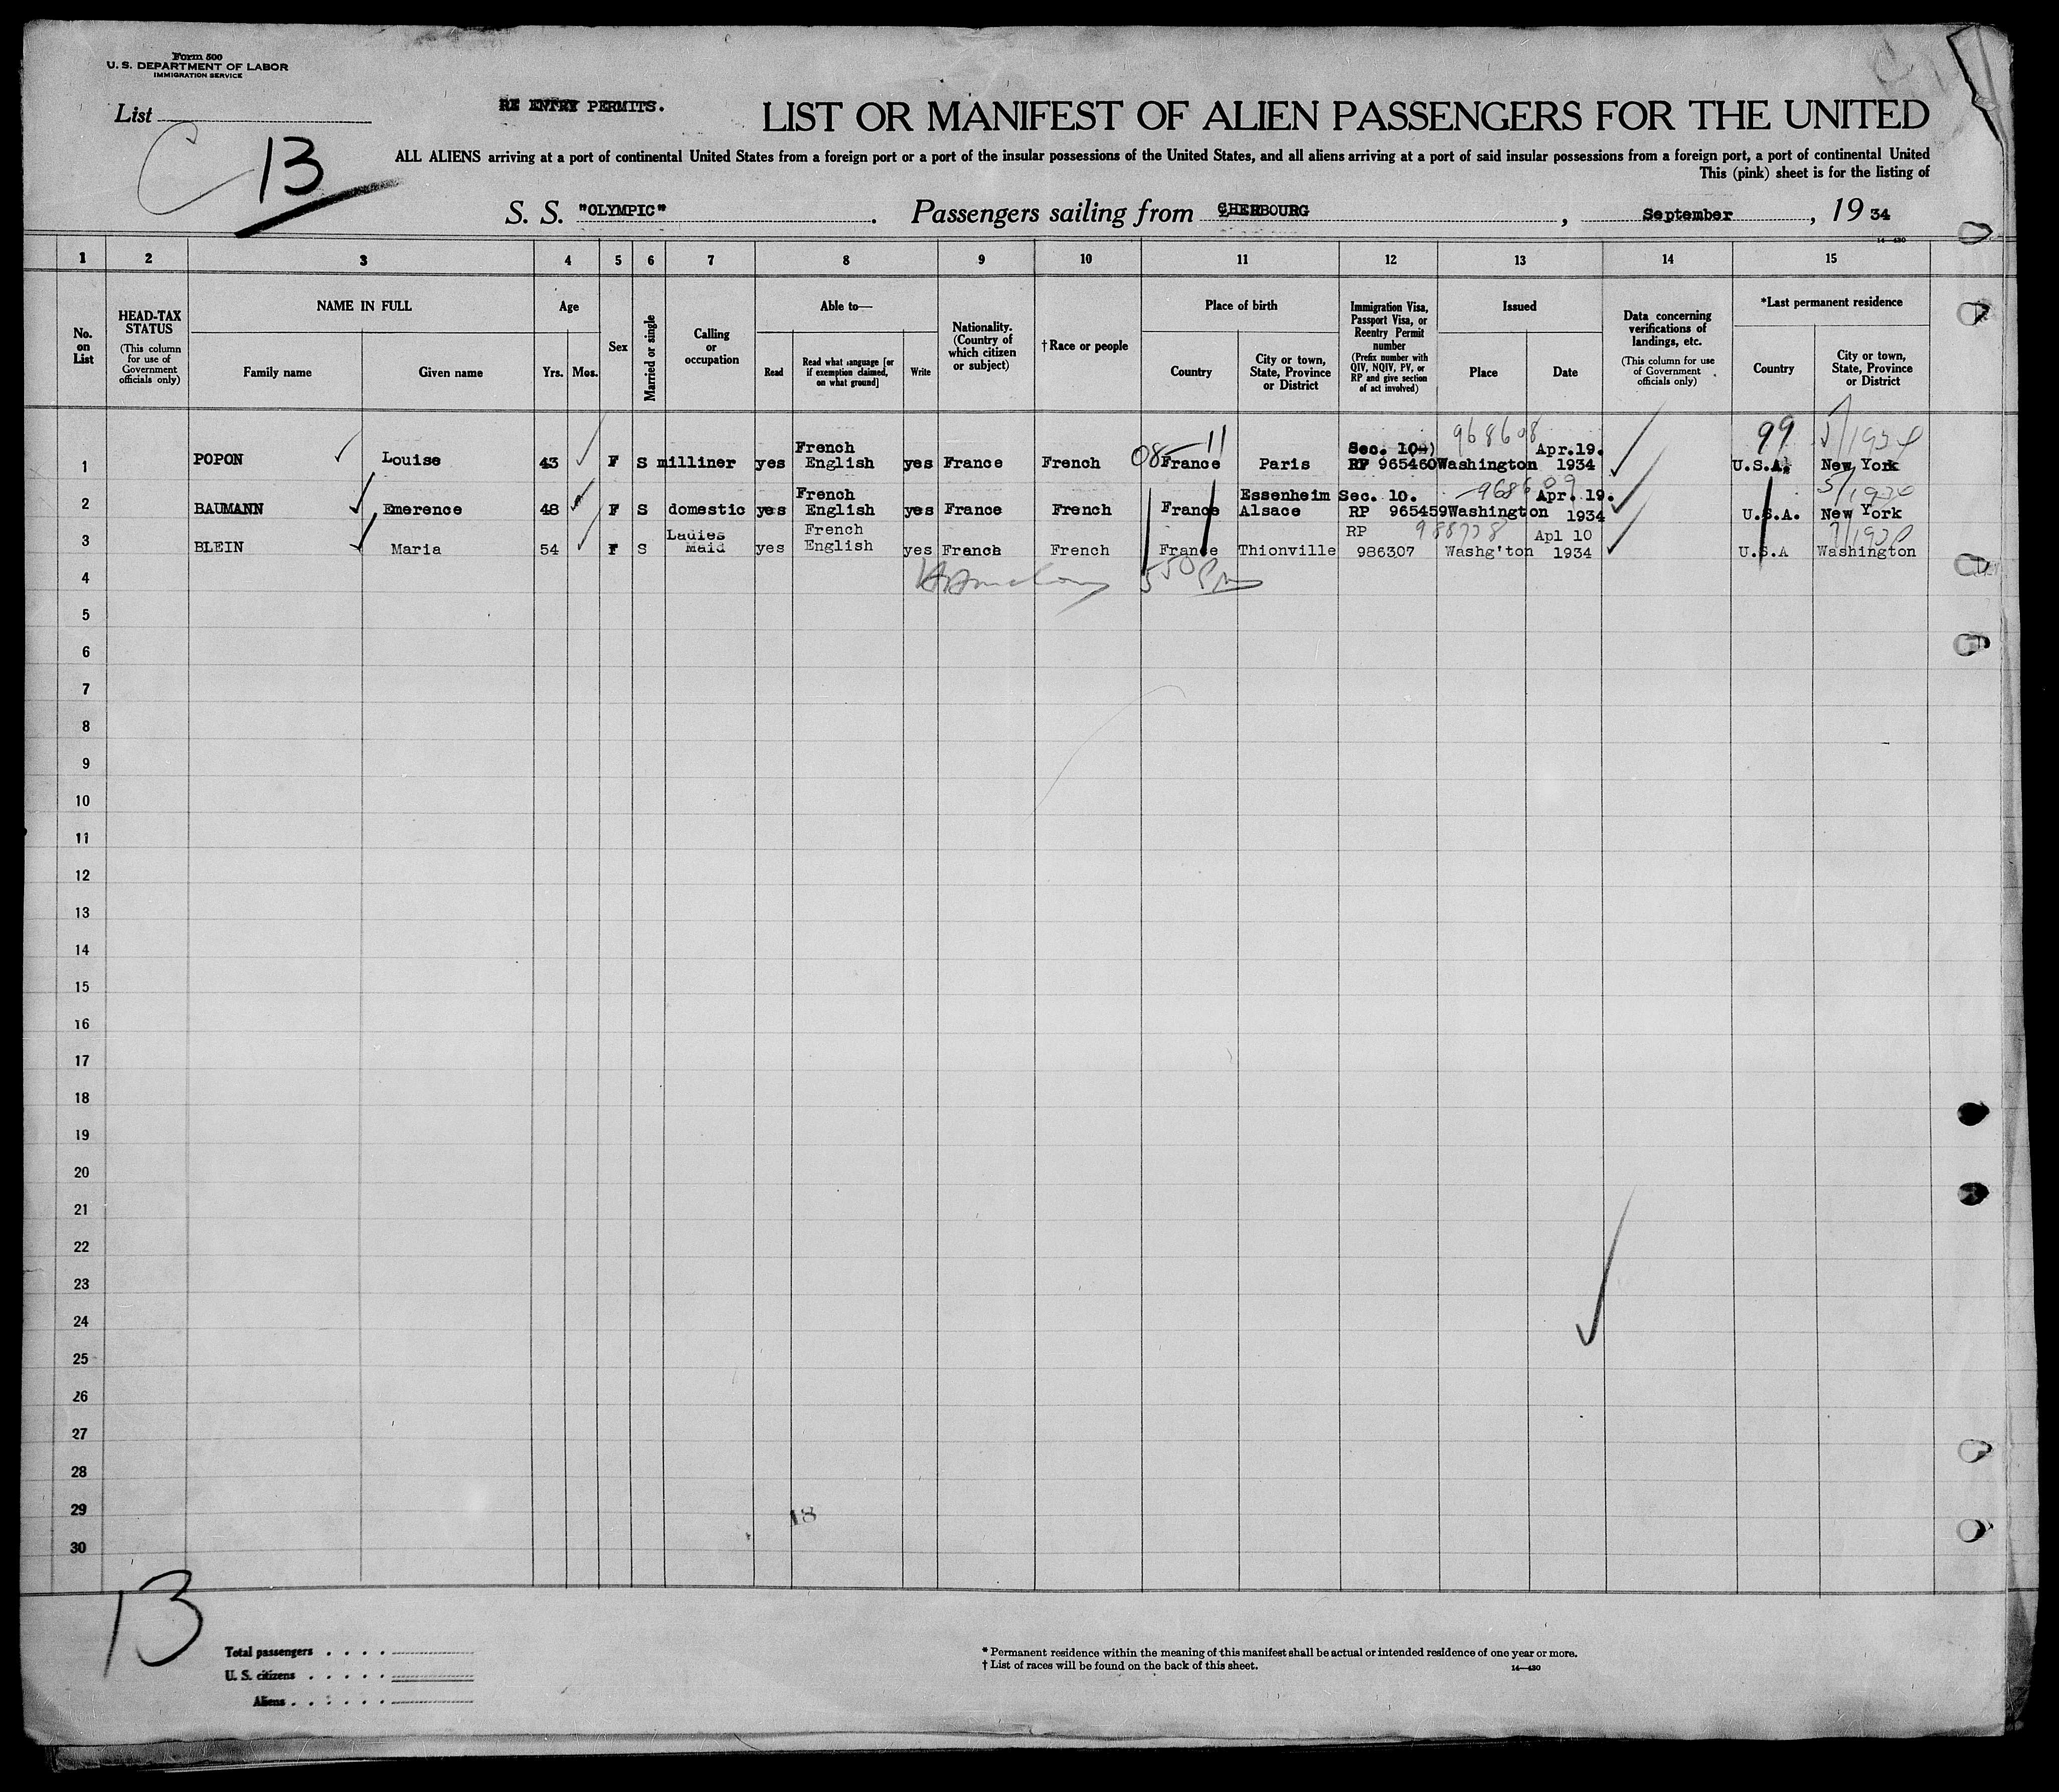 Form 500
U. S. DEPARTMENT OF LABOR
IMMIGRATION SERVICE
List
RE ENTRY PERMITS.
LIST OR MANIFEST OF ALIEN PASSENGERS FOR THE UNITED
13
ALL ALIENS arriving at a port of continental United States from a foreign port or a port of the insular possessions of the United States, and all aliens arriving at a port of said insular possessions from a foreign port, a port of continental United
This (pink) sheet is for the listing of
S. S. "OLYMPIC" . Passengers sailing from CHERBOURG , September , 19 34
14—430
1 2 3 4 5 6 7 8 9 10 11 12 13 14 15
No. on List
HEAD-TAX STATUS (This column for use of Government officials only)
NAME IN FULL
Family name Given name
Age
Yrs. Mos.
Sex
Married or single
Calling or occupation
Able to—
Read Read what language [or if exemption claimed, on what ground] Write
Nationality. (Country of which citizen or subject)
†Race or people
Place of birth
Country City or town, State, Province or District
Immigration Visa, Passport Visa, or Reentry Permit number (Prefix number with QIV, NQIV, PV, or RP and give section of act involved)
Issued
Place Date
Data concerning verifications of landings, etc. (This column for use of Government officials only)
*Last permanent residence
Country City or town, State, Province or District
968608 99 5/1934
French Sec. 10 Apr.19.
1 POPON Louise 43 F S milliner yes English yes France French 08 France 11 Paris RP 965460 Washington 1934 U.S.A. New York
968609
French Essenheim Sec. 10. Apr. 19.
2 BAUMANN Emerence 48 F S domestic yes English yes France French France Alsace RP 965459 Washington 1934 U.S.A. New York
Ladies French RP 988738 Apl 10
3 BLEIN Maria 54 F S Maid yes English yes French French France Thionville 986307 Washg'ton 1934 U.S.A Washington
4
5
6
7
8
9
10
11
12
13
14
15
16
17
18
19
20
21
22
23
24
25
26
27
28
29
18
30
13
Total passengers . . . .
U. S. citizens . . . . .
Aliens . . . . . .
* Permanent residence within the meaning of this manifest shall be actual or intended residence of one year or more.
† List of races will be found on the back of this sheet. 14—430